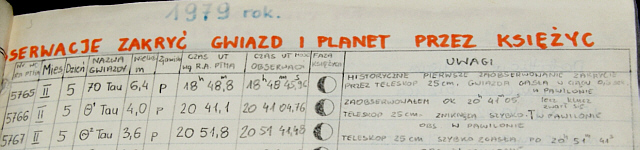 1979 rok.
SERWACJE ZAKRYĆ GWIAZD I PLANET PRZEZ KSIĘŻYC
Mies Dzień NAZWA GWIAZDY Wielk. m Zjawisko CZAS UT wg R.A. PTMA CZAS UT MOM. OBSERWACJI FAZA KSIĘŻYCA UWAGI
5765 II 5 70 Tau 6,4 P 18h 48m,8 18h 48m 45s,96 HISTORYCZNE PIERWSZE ZAOBSERWOWANE ZAKRYCIE
PRZEZ TELESKOP 25cm. GWIAZDA GASŁA W CIĄGU
W PAWILONIE
5766 II 5 θ¹ Tau 4,0 P 20 41,1 20 41 04,76 ZAOBSERWOWAŁEM OK 20h 41m 05s lecz klucz
TELESKOP 25cm. ZNIKNĘŁA SZYBKO W PAWILONIE
5767 II 5 θ² Tau 3,6 P 20 51,8 20 51 41,45 OBS W PAWILONIE
TELESKOP 25cm SZYBKO ZGASŁA PO 20h 51m 41s